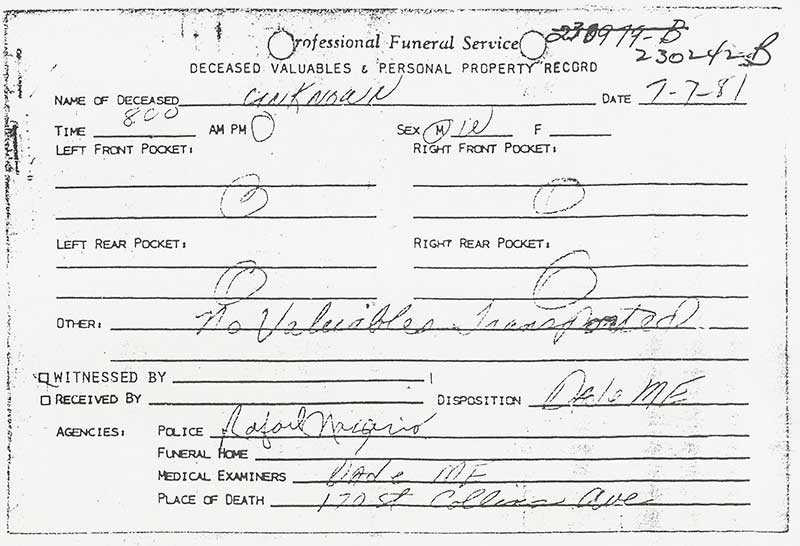 Professional Funeral Service
230242-B
DECEASED VALUABLES & PERSONAL PROPERTY RECORD
NAME OF DECEASED Unknown DATE 7-7-81
TIME 800 AM PM SEX M W F
LEFT FRONT POCKET: RIGHT FRONT POCKET:
LEFT REAR POCKET: RIGHT REAR POCKET:
OTHER: No Valuables Transported
WITNESSED BY
RECEIVED BY DISPOSITION Dade ME
AGENCIES: POLICE Rafael
FUNERAL HOME
MEDICAL EXAMINERS Dade ME
PLACE OF DEATH 170 St Collins Ave